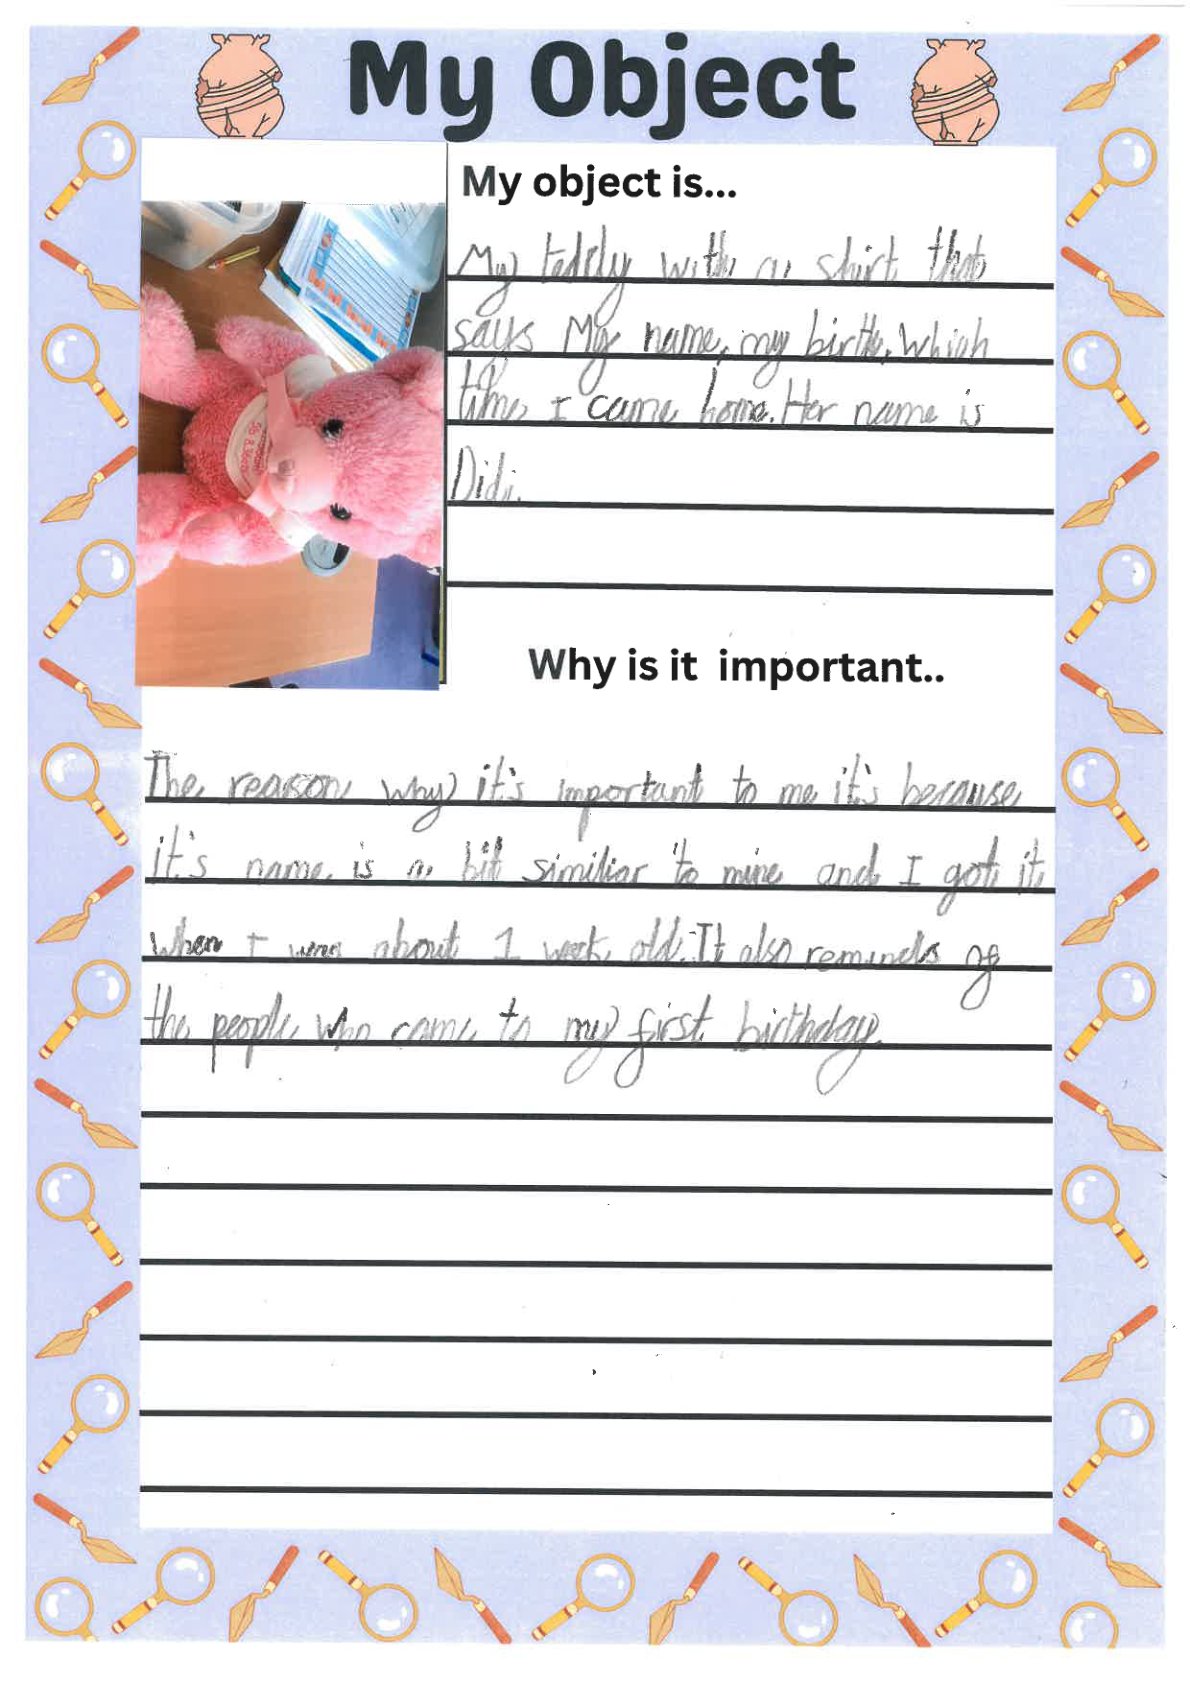 My Object
My object is...
My teddy with a shirt that
says My name, my birth, which
time I came home. Her name is
Didi.
Why is it important..
The reason why it's important to me it's because
it's name is a bit similiar to mine and I got it
when I was about 1 week old. It also reminds of
the people who came to my first birthday.